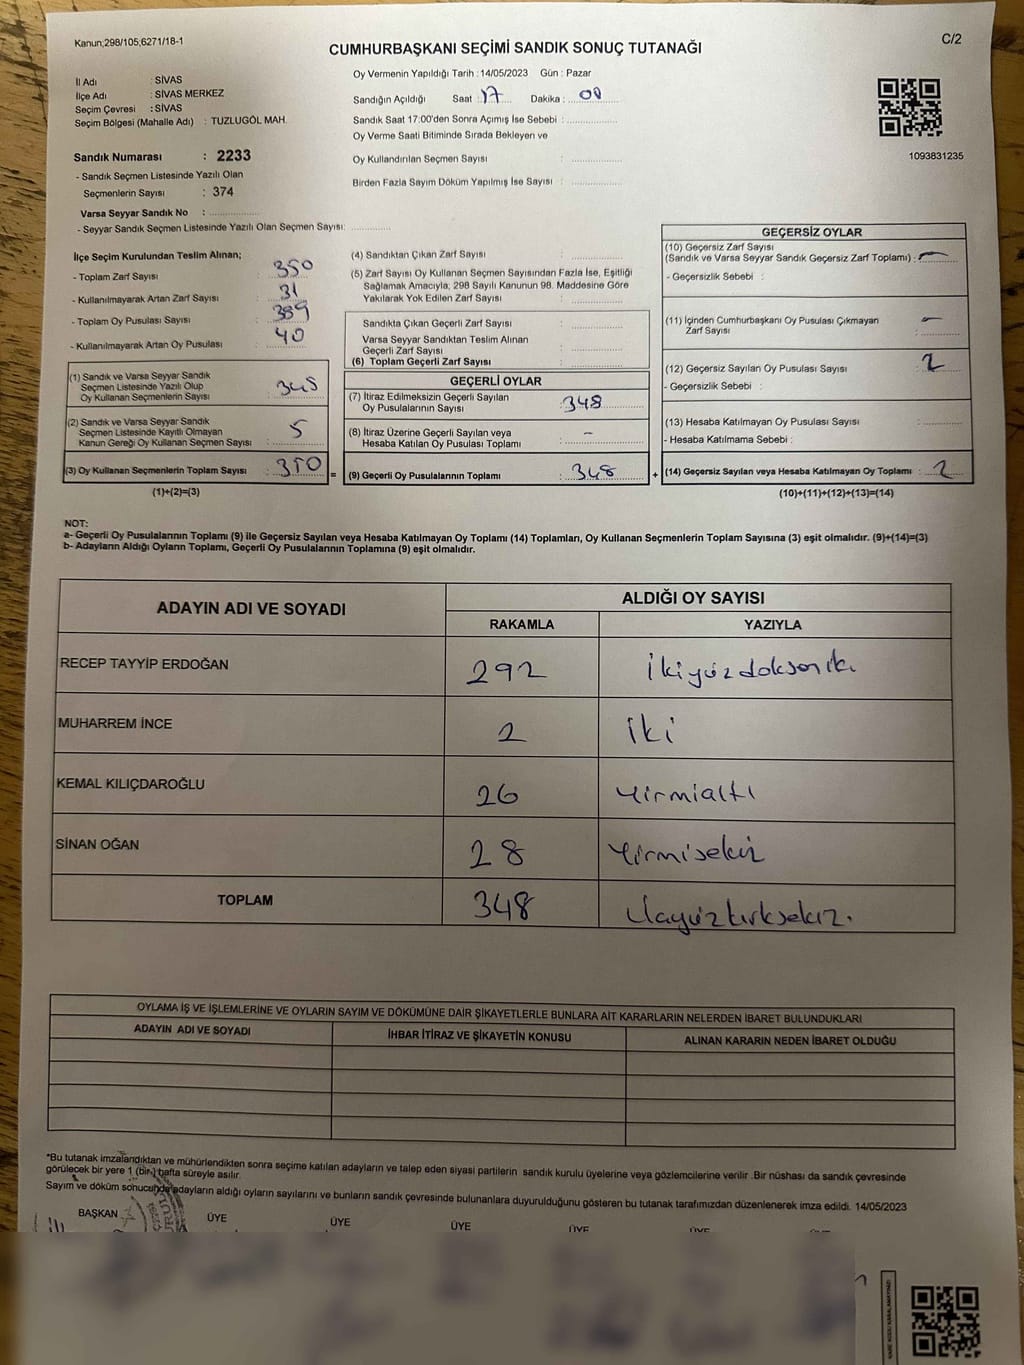 Kanun;298/105;6271/18-1
C/2
CUMHURBAŞKANI SEÇİMİ SANDIK SONUÇ TUTANAĞI
İl Adı : SİVAS
İlçe Adı : SİVAS MERKEZ
Seçim Çevresi : SİVAS
Seçim Bölgesi (Mahalle Adı) : TUZLUGÖL MAH.
Sandık Numarası : 2233
- Sandık Seçmen Listesinde Yazılı Olan
Seçmenlerin Sayısı : 374
Varsa Seyyar Sandık No :
- Seyyar Sandık Seçmen Listesinde Yazılı Olan Seçmen Sayısı:
Oy Vermenin Yapıldığı Tarih : 14/05/2023 Gün : Pazar
Sandığın Açıldığı Saat : 17 Dakika : 00
Sandık Saat 17:00'den Sonra Açımış İse Sebebi :
Oy Verme Saati Bitiminde Sırada Bekleyen ve
Oy Kullandırılan Seçmen Sayısı :
Birden Fazla Sayım Döküm Yapılmış İse Sayısı :
1093831235
İlçe Seçim Kurulundan Teslim Alınan;
- Toplam Zarf Sayısı : 350
- Kullanılmayarak Artan Zarf Sayısı : 31
- Toplam Oy Pusulası Sayısı : 389
- Kullanılmayarak Artan Oy Pusulası : 40
(1) Sandık ve Varsa Seyyar Sandık
Seçmen Listesinde Yazılı Olup
Oy Kullanan Seçmenlerin Sayısı : 345
(2) Sandık ve Varsa Seyyar Sandık
Seçmen Listesinde Kayıtlı Olmayan
Kanun Gereği Oy Kullanan Seçmen Sayısı : 5
(3) Oy Kullanan Seçmenlerin Toplam Sayısı : 350
(1)+(2)=(3)
(4) Sandıktan Çıkan Zarf Sayısı :
(5) Zarf Sayısı Oy Kullanan Seçmen Sayısından Fazla İse, Eşitliği
Sağlamak Amacıyla, 298 Sayılı Kanunun 98. Maddesine Göre
Yakılarak Yok Edilen Zarf Sayısı :
Sandıkta Çıkan Geçerli Zarf Sayısı :
Varsa Seyyar Sandıktan Teslim Alınan
Geçerli Zarf Sayısı :
(6) Toplam Geçerli Zarf Sayısı :
GEÇERLİ OYLAR
(7) İtiraz Edilmeksizin Geçerli Sayılan
Oy Pusulalarının Sayısı : 348
(8) İtiraz Üzerine Geçerli Sayılan veya
Hesaba Katılan Oy Pusulası Toplamı : -
= (9) Geçerli Oy Pusulalarının Toplamı : 348 +
GEÇERSİZ OYLAR
(10) Geçersiz Zarf Sayısı
(Sandık ve Varsa Seyyar Sandık Geçersiz Zarf Toplamı) : -
- Geçersizlik Sebebi :
(11) İçinden Cumhurbaşkanı Oy Pusulası Çıkmayan
Zarf Sayısı : -
(12) Geçersiz Sayılan Oy Pusulası Sayısı : 2
- Geçersizlik Sebebi :
(13) Hesaba Katılmayan Oy Pusulası Sayısı :
- Hesaba Katılmama Sebebi :
(14) Geçersiz Sayılan veya Hesaba Katılmayan Oy Toplamı : 2
(10)+(11)+(12)+(13)=(14)
NOT:
a- Geçerli Oy Pusulalarının Toplamı (9) ile Geçersiz Sayılan veya Hesaba Katılmayan Oy Toplamı (14) Toplamları, Oy Kullanan Seçmenlerin Toplam Sayısına (3) eşit olmalıdır. (9)+(14)=(3)
b- Adayların Aldığı Oyların Toplamı, Geçerli Oy Pusulalarının Toplamına (9) eşit olmalıdır.
ADAYIN ADI VE SOYADI ALDIĞI OY SAYISI
RAKAMLA YAZIYLA
RECEP TAYYİP ERDOĞAN 292 ikiyüzdoksaniki
MUHARREM İNCE 2 iki
KEMAL KILIÇDAROĞLU 26 Yirmialtı
SİNAN OĞAN 28 Yirmisekiz
TOPLAM 348 Üçyüzkırksekiz.
OYLAMA İŞ VE İŞLEMLERİNE VE OYLARIN SAYIM VE DÖKÜMÜNE DAİR ŞİKAYETLERLE BUNLARA AİT KARARLARIN NELERDEN İBARET BULUNDUKLARI
ADAYIN ADI VE SOYADI İHBAR İTİRAZ VE ŞİKAYETİN KONUSU ALINAN KARARIN NEDEN İBARET OLDUĞU
*Bu tutanak imzalandıktan ve mühürlendikten sonra seçime katılan adayların ve talep eden siyasi partilerin sandık kurulu üyelerine veya gözlemcilerine verilir .Bir nüshası da sandık çevresinde
görülecek bir yere 1 (bir ) hafta süreyle asılır.
Sayım ve döküm sonucunda adayların aldığı oyların sayılarını ve bunların sandık çevresinde bulunanlara duyurulduğunu gösteren bu tutanak tarafımızdan düzenlenerek imza edildi. 14/05/2023
BAŞKAN ÜYE ÜYE ÜYE ÜYE ÜYE